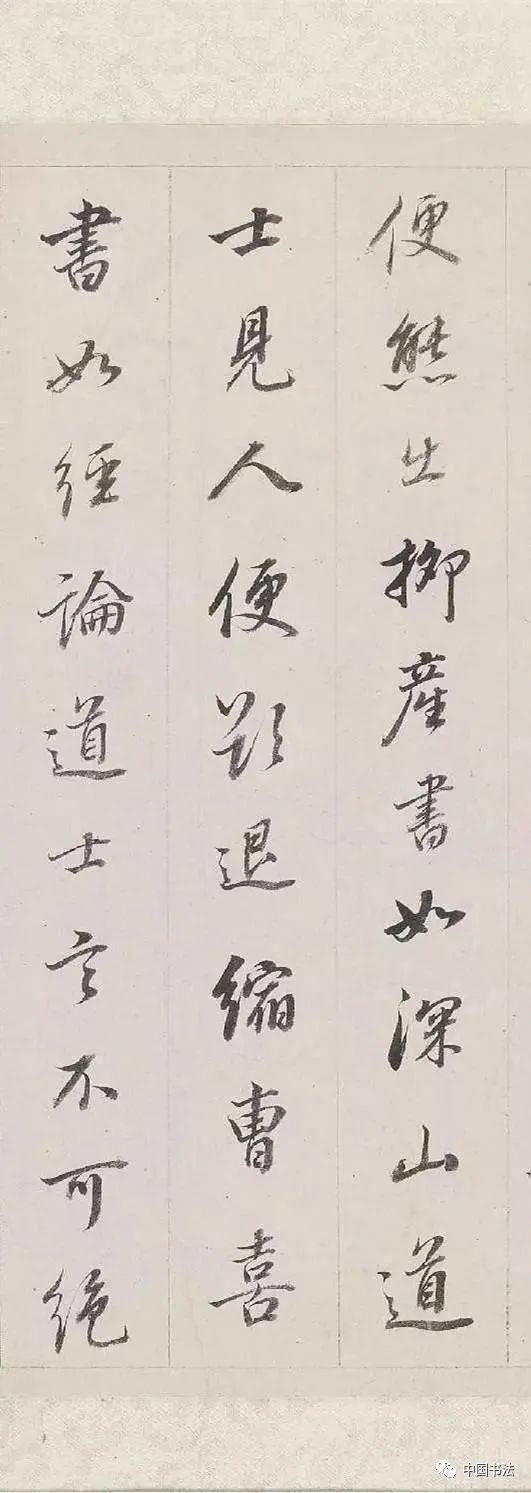 便熊出柳産書如深山道
士見人便欲退縮曹喜
書如經論道士言不可絶
中国书法